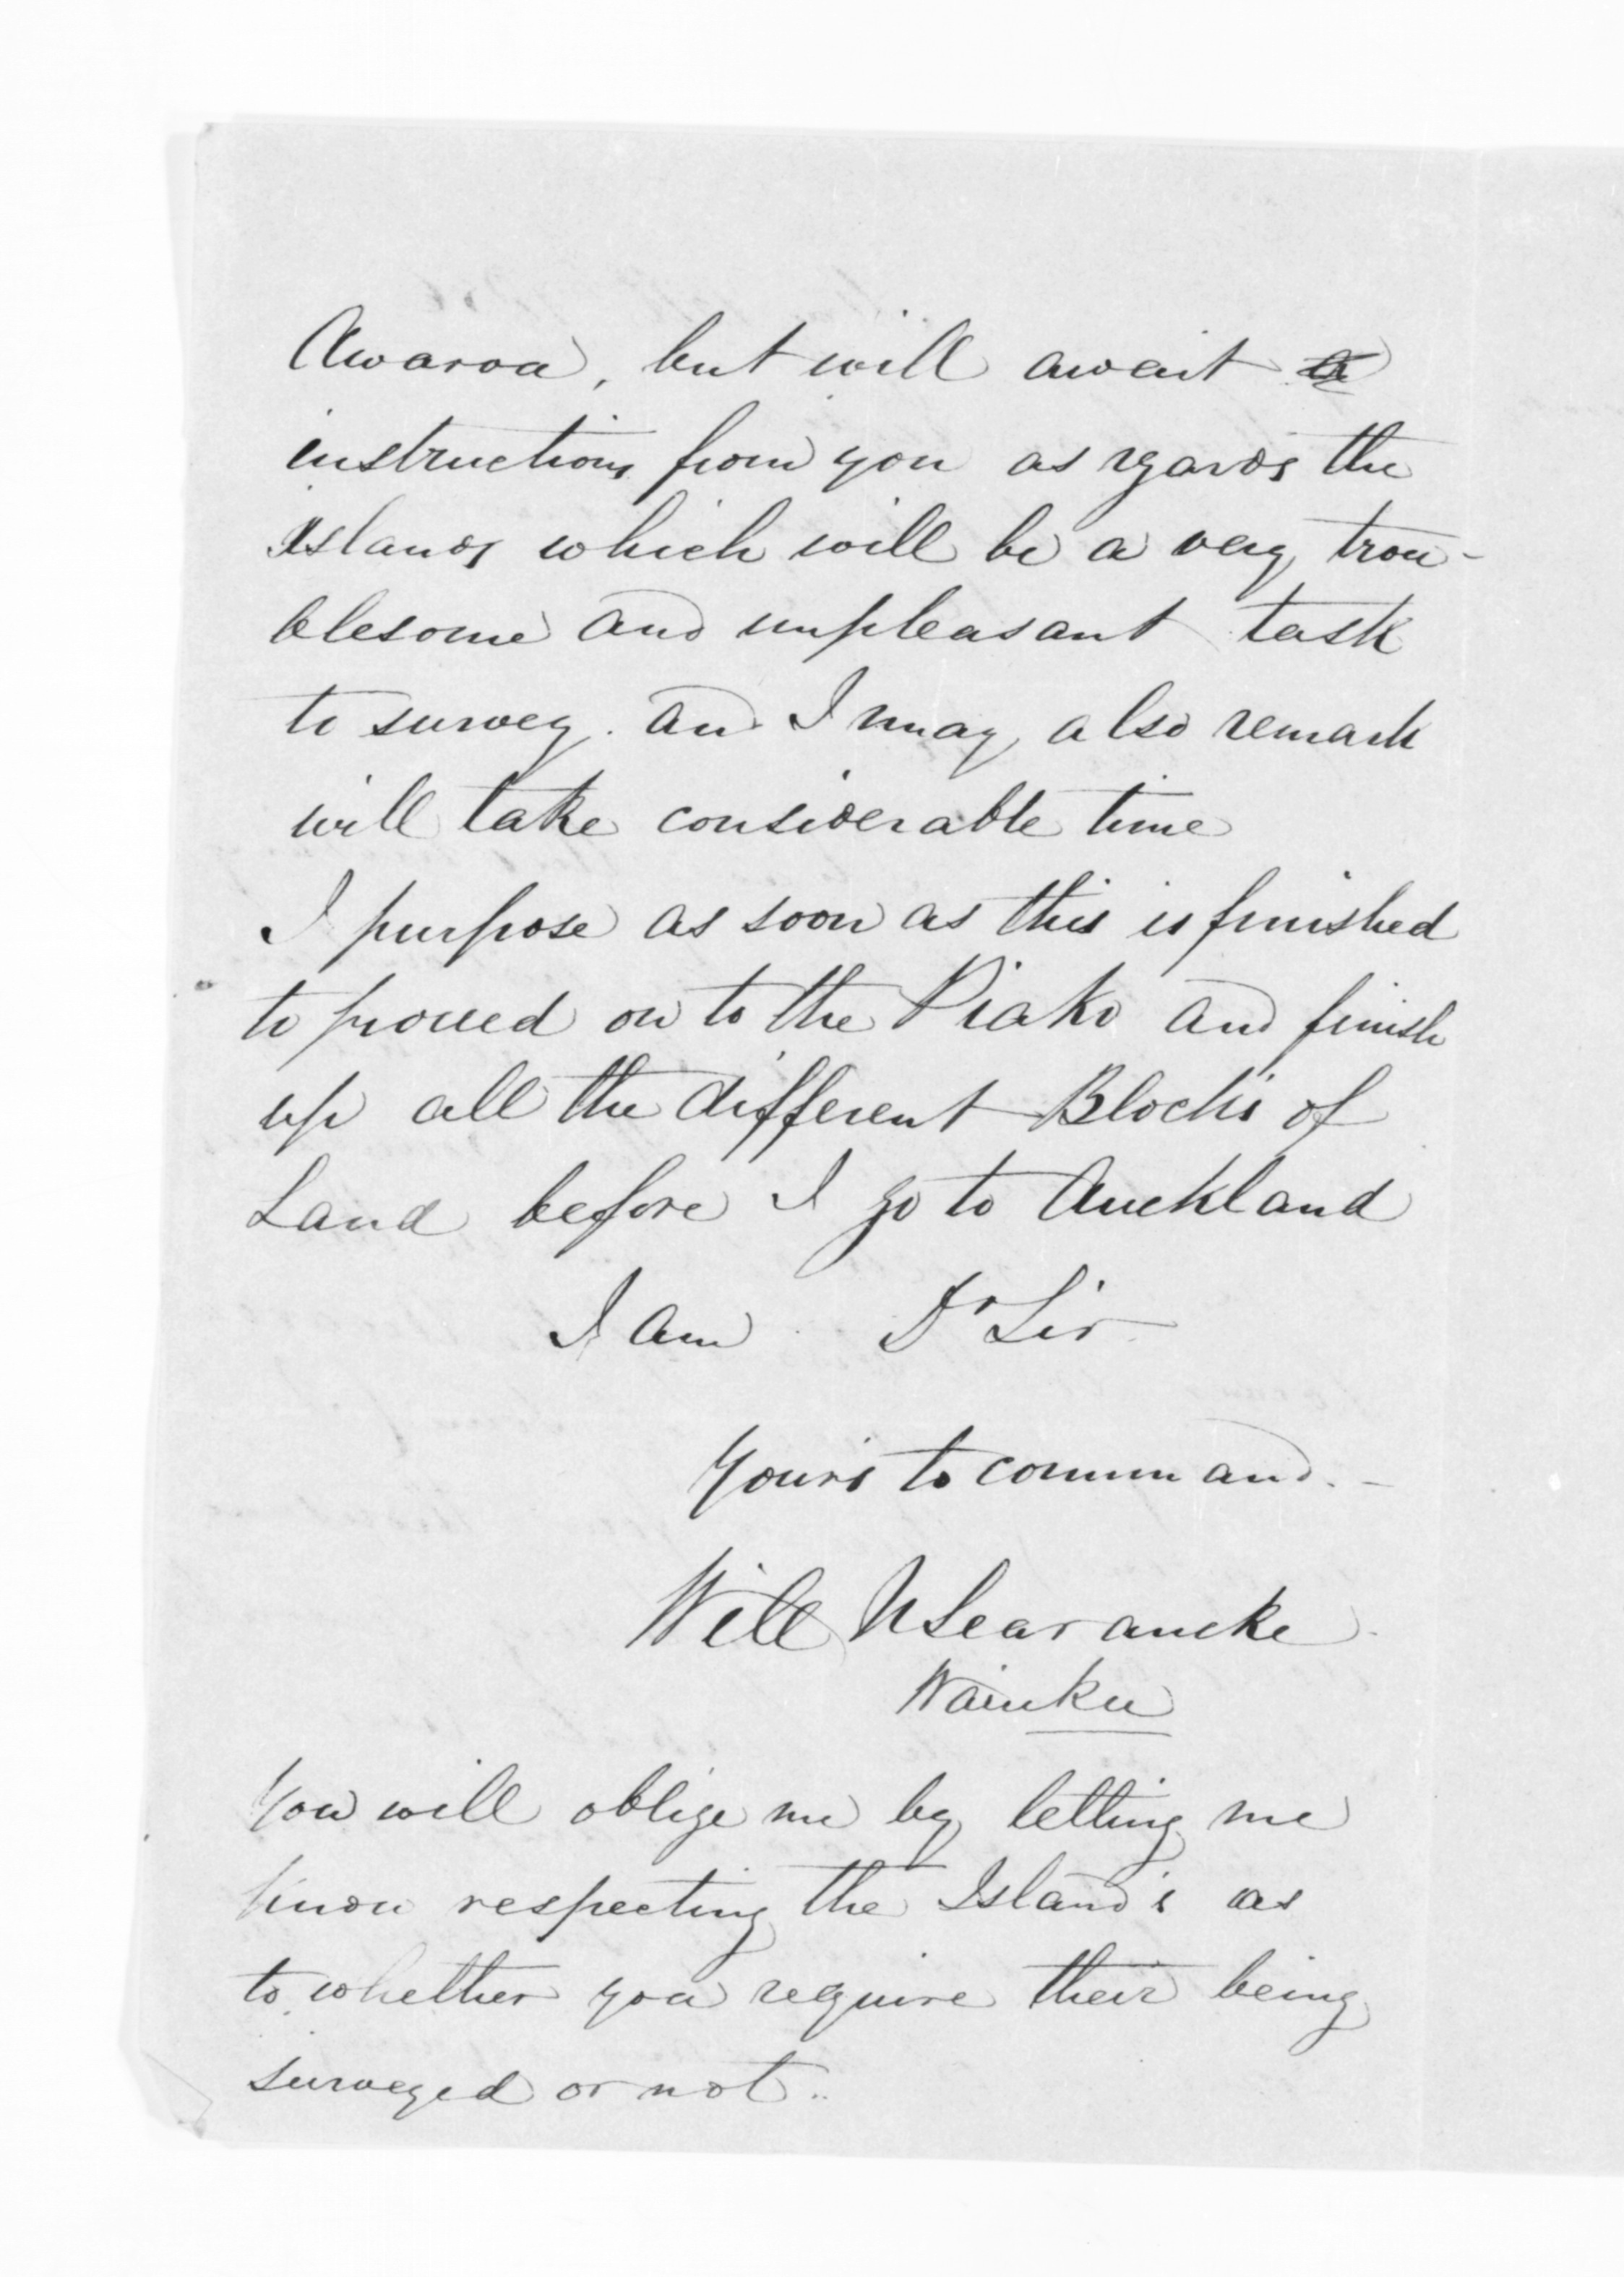 Awaroa, but will await
instructions from you as regards the
Islands which will be a very trou-
blesome and unpleasant task
to survey. and I may also remark
will take considerable time
I purpose as soon as this is finished
to proceed on to the Piako and finish
up all the different Blocks of
Land before I go to Auckland
I am Dr Sir
Yours to command. -
Will N Searancke
Waiuku
You will oblige me by letting me
know respecting the Island's as
to whether you require their being
surveyed or not..